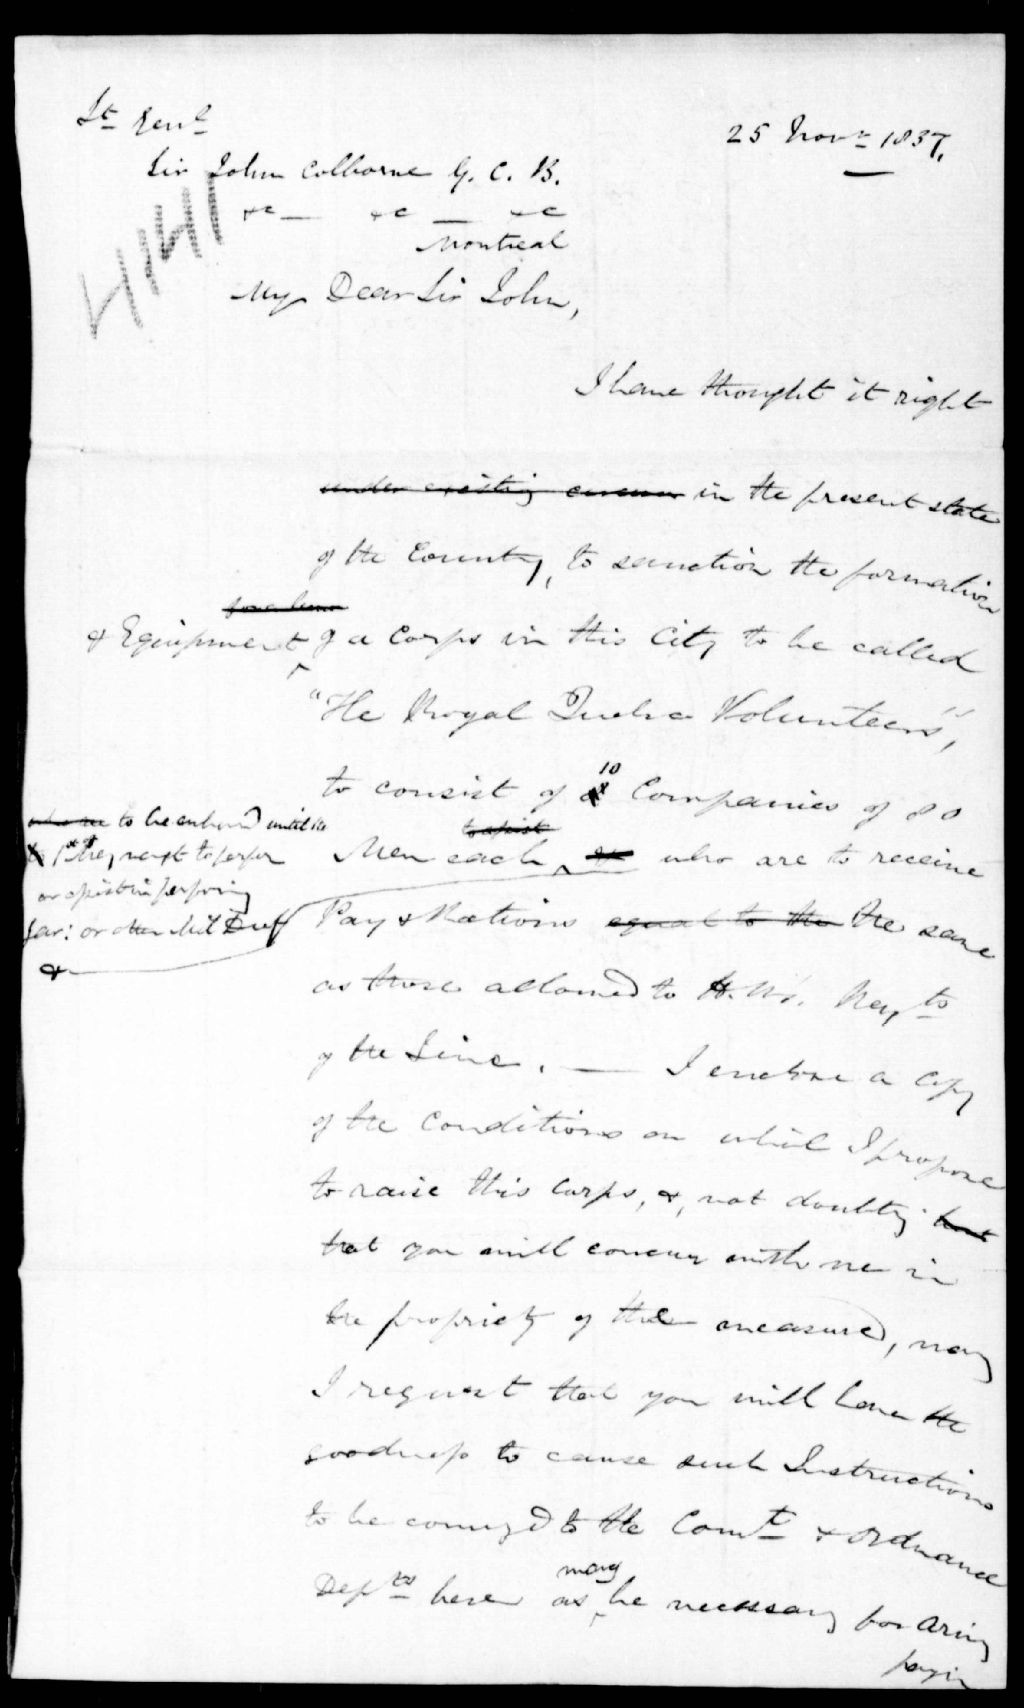 Lt Genl
25 Novr 1837.
Sir John Colborne G. C. B.
&c — &c — &c
Montreal
4141
My Dear Sir John,
I have thought it right
under existing circum in the present state
of the Country, to sanction the formation
& Equipment of a Corps in this City to be called
"The Royal Quebec Volunteers",
to consist of 10 Companies of 80
to assist
Men each, who are to receive
to be embod until the
or assist in perforing
Gar: or other Mil Duty
&
Pay & Rations equal to the the same
as those allowed to H. M's. Regts
of the Line. — I enclose a copy
of the Conditions on which I propose
to raise this Corps, &, not doubtg but
that you will concur with me in
the propriety of the measure, may
I request that you will have the
goodness to cause such Instructions
to be conveyd to the Comt & Ordnance
Depts here as may be necessary for Arming
payin